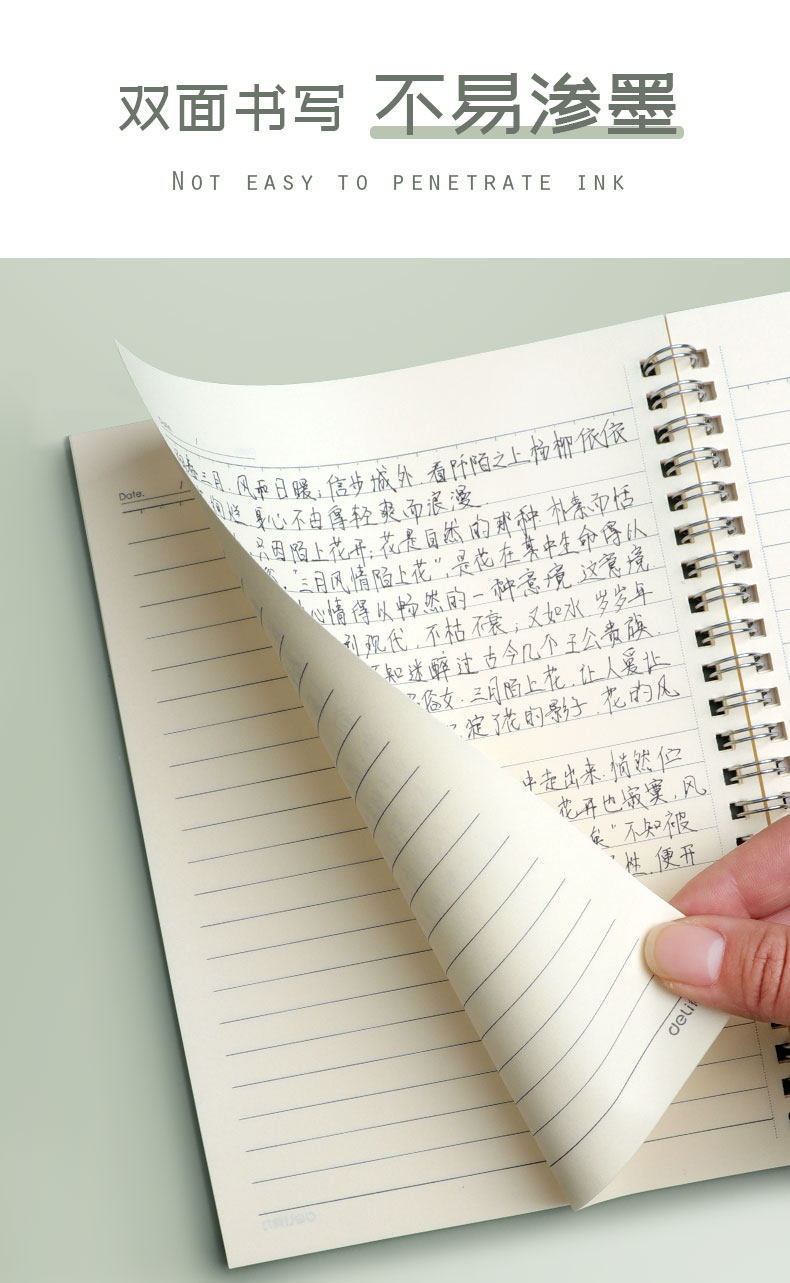 双面书写 不易渗墨
NOT EASY TO PENETRATE INK
Date.
三月,风和日暖,信步城外,看阡陌之上杨柳依依
身心不由得轻爽而浪漫
只因陌上花开;花是自然的那种朴素而恬
"三月风情陌上花",是花在其中生命得以
心情得以畅然的一种意境,这意境
到现代,不枯不衰;又如水,岁岁年
知迷醉过古今几个王公贵族,
女.三月陌上花,让人爱让
定了花的影子,花的风
中走出来,悄然伫
花开也寂寞,风
矣"不知被
性,便开
deli